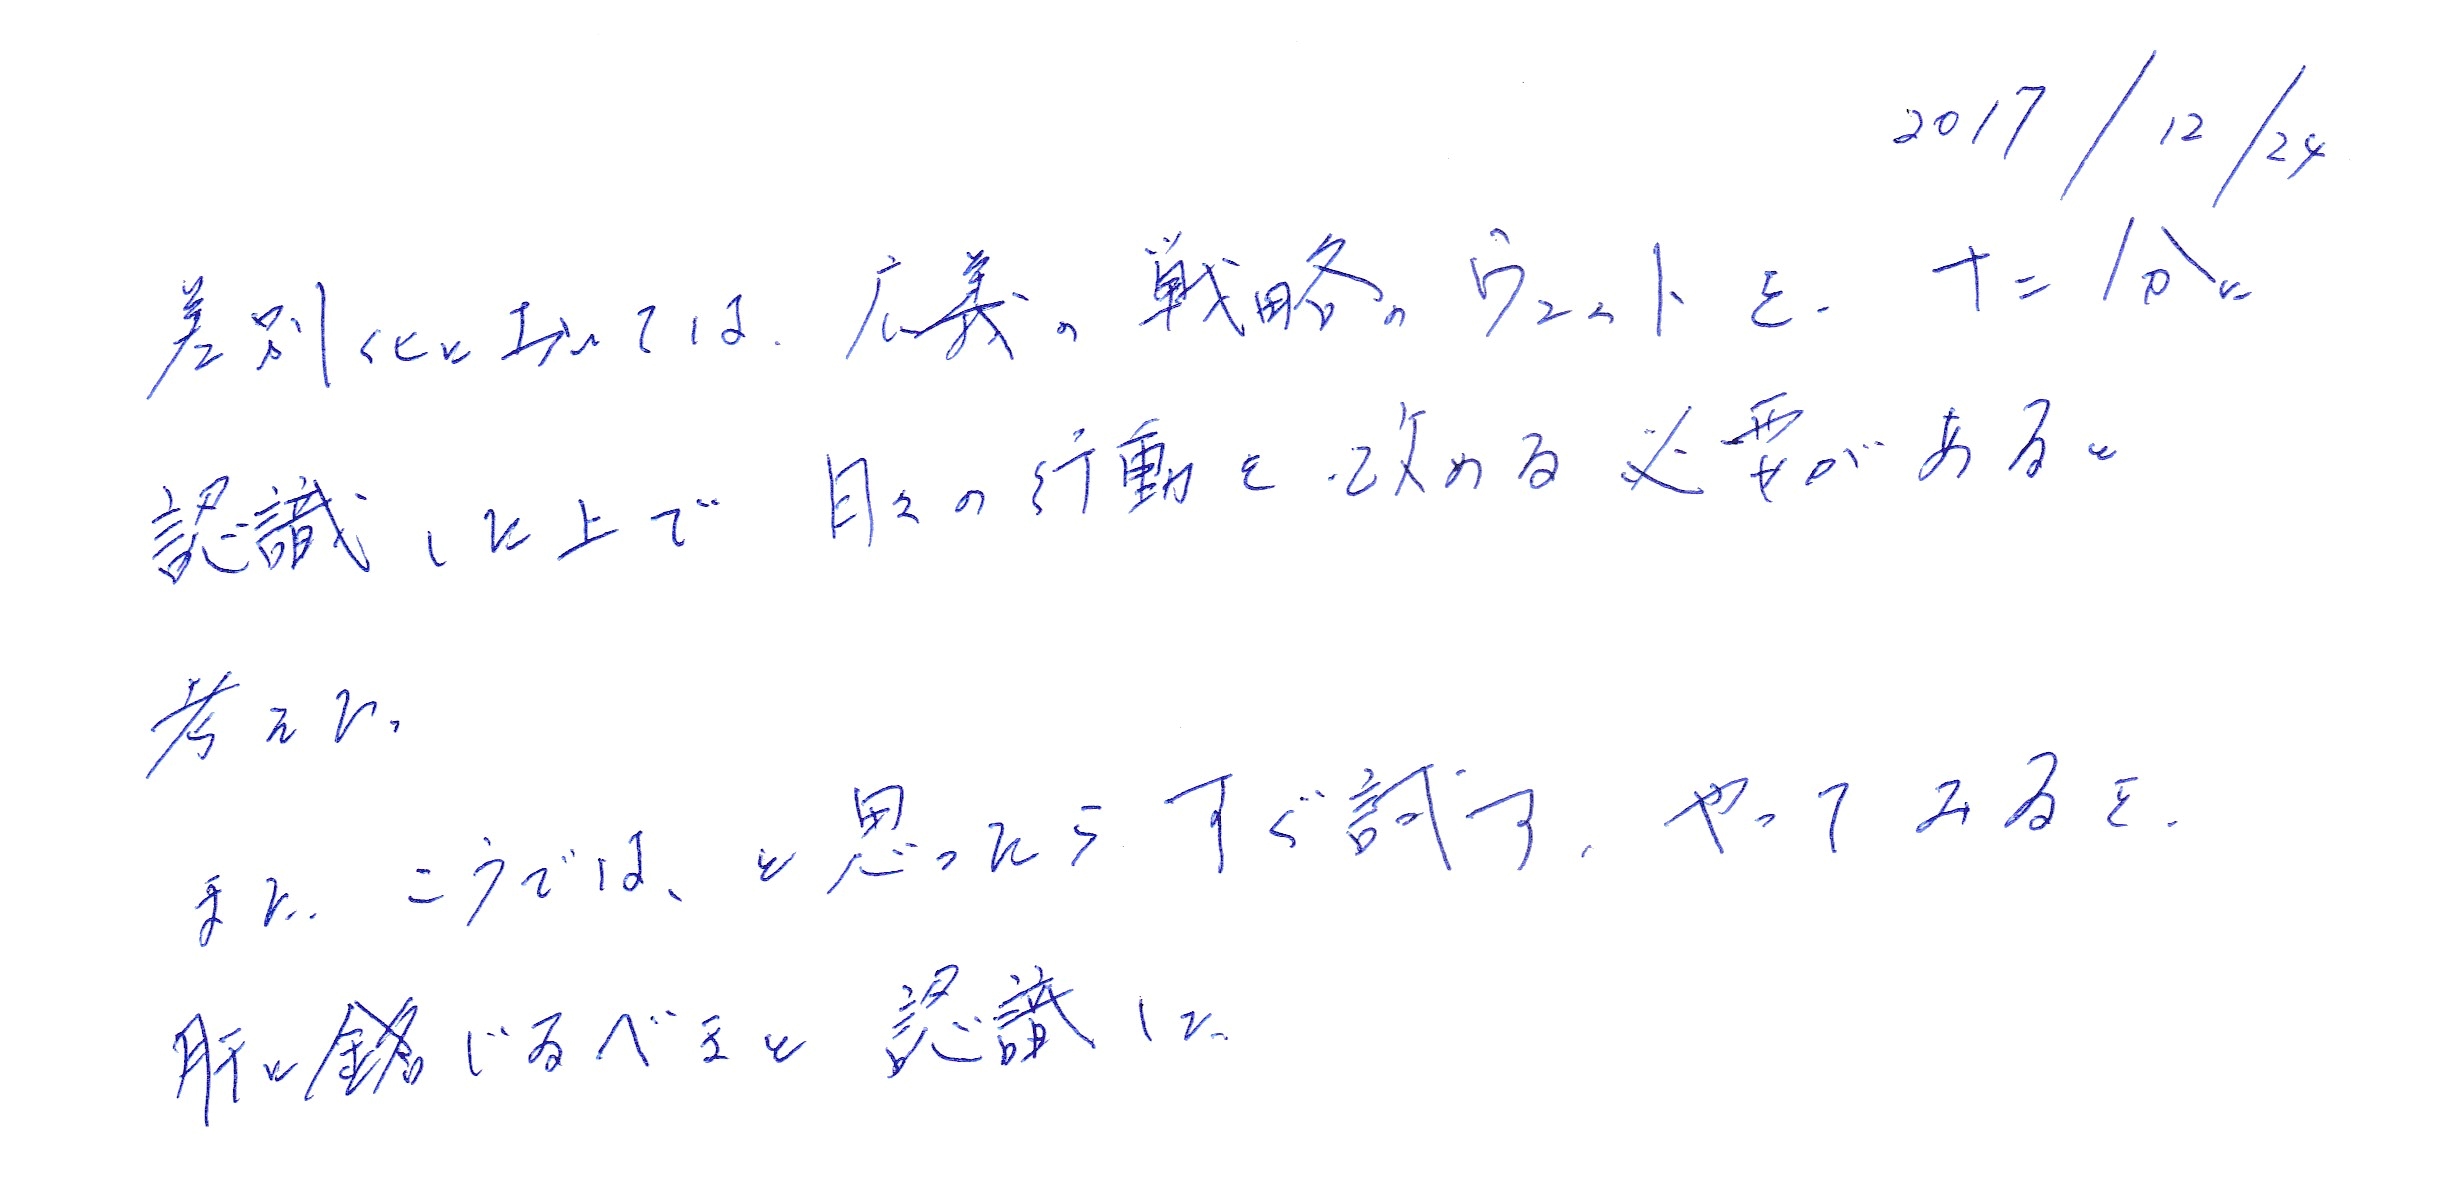 2017/12/24
差別化に於いては、広義の戦略のウェイトを、十二分に
認識した上で 日々の行動を改める必要があると
考えた。
また、こうでは、と思ったらすぐ試す、やってみるを、
肝に銘じるべきと認識した